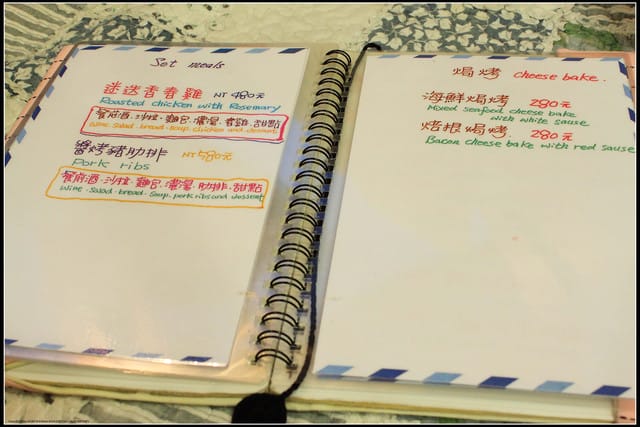 Set meals
迷迭香春雞 NT 480元
Roasted chicken with Rosemary
餐前酒·沙拉·麵包·濃湯·春雞·甜點
Wine·Salad·bread·Soup·chicken and dessert
醬烤豬肋排 NT 580元
Pork ribs
餐前酒·沙拉·麵包·濃湯·肋排·甜點
Wine·Salad·bread·Soup·pork ribs and dessert
焗烤 cheese bake.
海鮮焗烤 280元
Mixed seafood cheese bake
with white sause
培根焗烤 280元
Bacon cheese bake with red sause